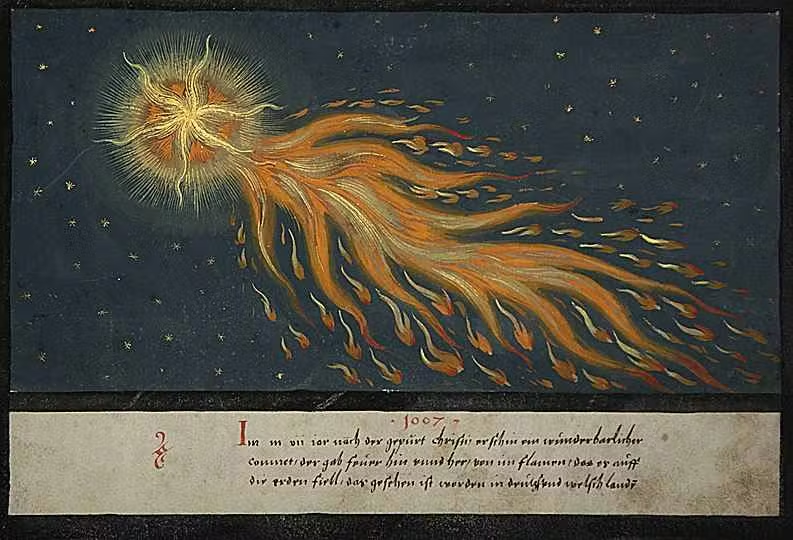 · 1007 ·
Im m vii iar nach der gepurt Christi erschin ein wunderbarlicher
commet, der gab feuer hin vnnd her, von im flamen, das er auff
die erden fiell, das gesehen ist worden in deutsch vnd welsch landṭ